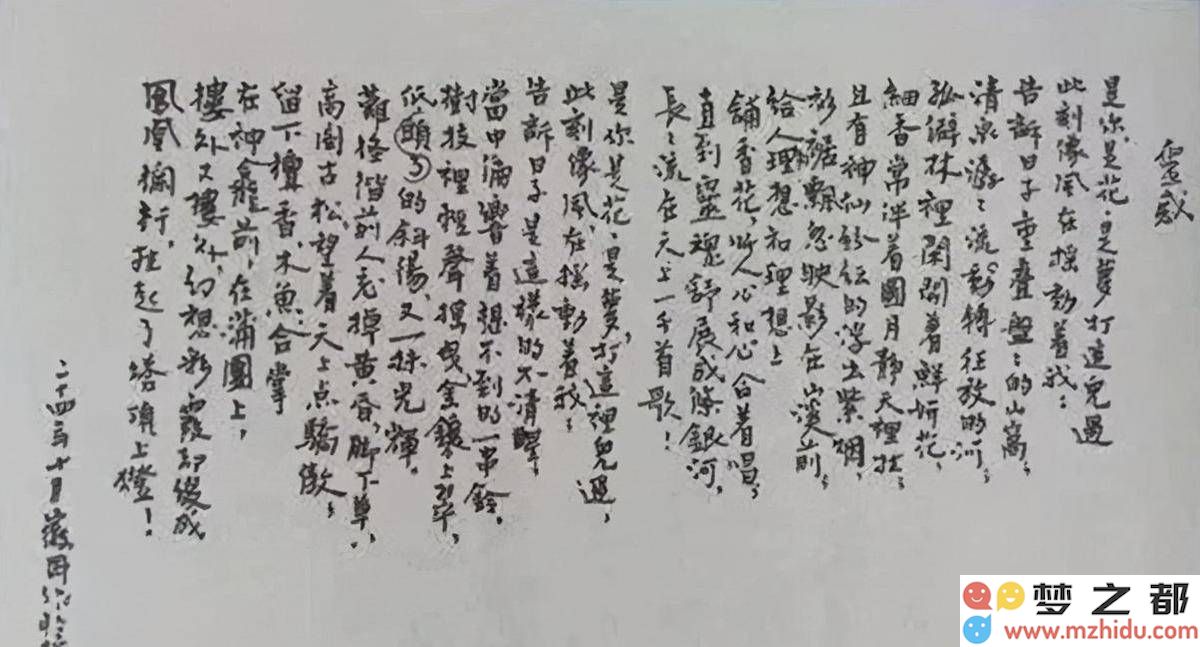 靈感
是你，是花，是夢，打這兒過
此刻像風在搖動着我：
告訴日子重叠盤盤的山窩；
清泉潺潺流動轉狂放的河；
孤僻林裡閑開着鮮妍花，
細香常伴着圓月靜天裡掛；
且有神仙紛紜的浮出紫烟，
衫裾飄忽映影在山溪前；
給人理想和理想上
舖香花，叫人心和心合着唱；
直到靈魂舒展成條銀河，
長長流在天上一千首歌！
是你，是花，是夢，打這裡兒過，
此刻像風，在搖動着我；
告訴日子是這樣的不清醒；
當中偏響着想不到的一串鈴，
樹枝裡輕聲搖曳；金鑲上翠，
低頭了的斜陽，又一抹光輝。
難怪階前人忘掉黃昏，脚下草，
高閣古松，望着天上点驕傲；
留下檀香，木魚，合掌
在神龕前，在蒲團上，
樓外又樓外，幻想彩霞却綴成
鳳凰欄杆，挂起了塔頂上燈！
二十四年十月 徽因
梦之都
www.mzhidu.com